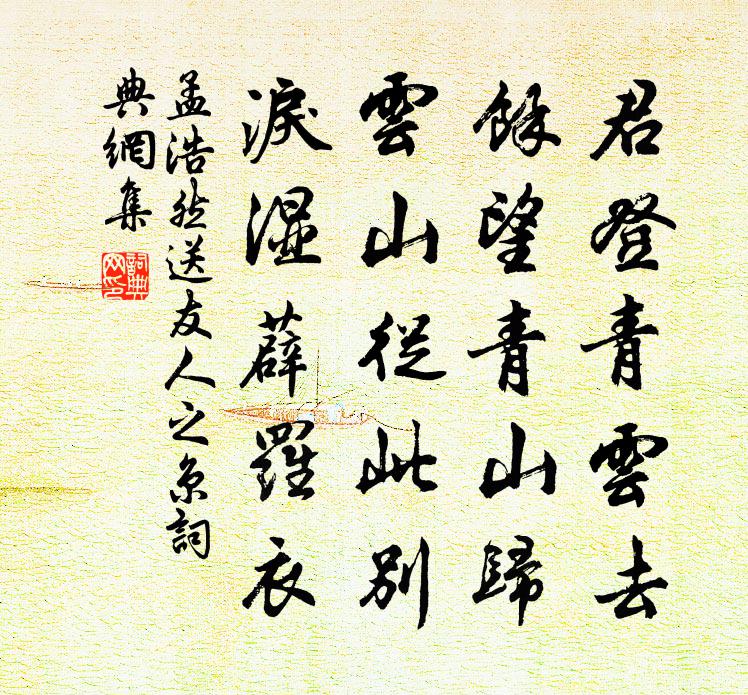 君登青雲去
餘望青山歸
雲山從此別
淚湿薜羅衣
孟浩然送友人之京詞
典網集
詞典
网印